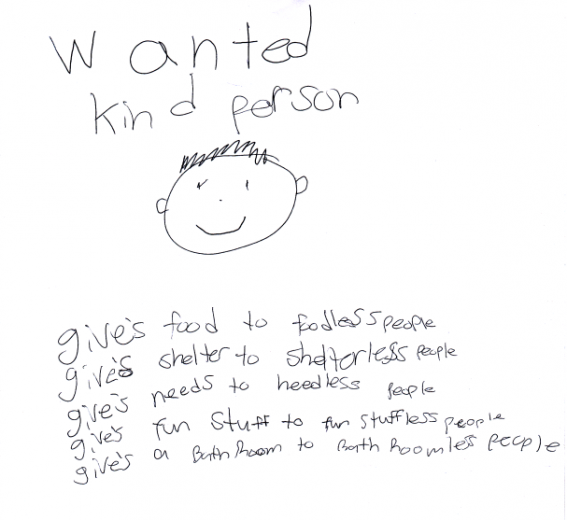 Wanted
kind person
give's food to foodless people
give's shelter to shelterless people
give's needs to needless people
give's fun stuff to fun stuffless people
give's a Bath Room to Bath Roomles people